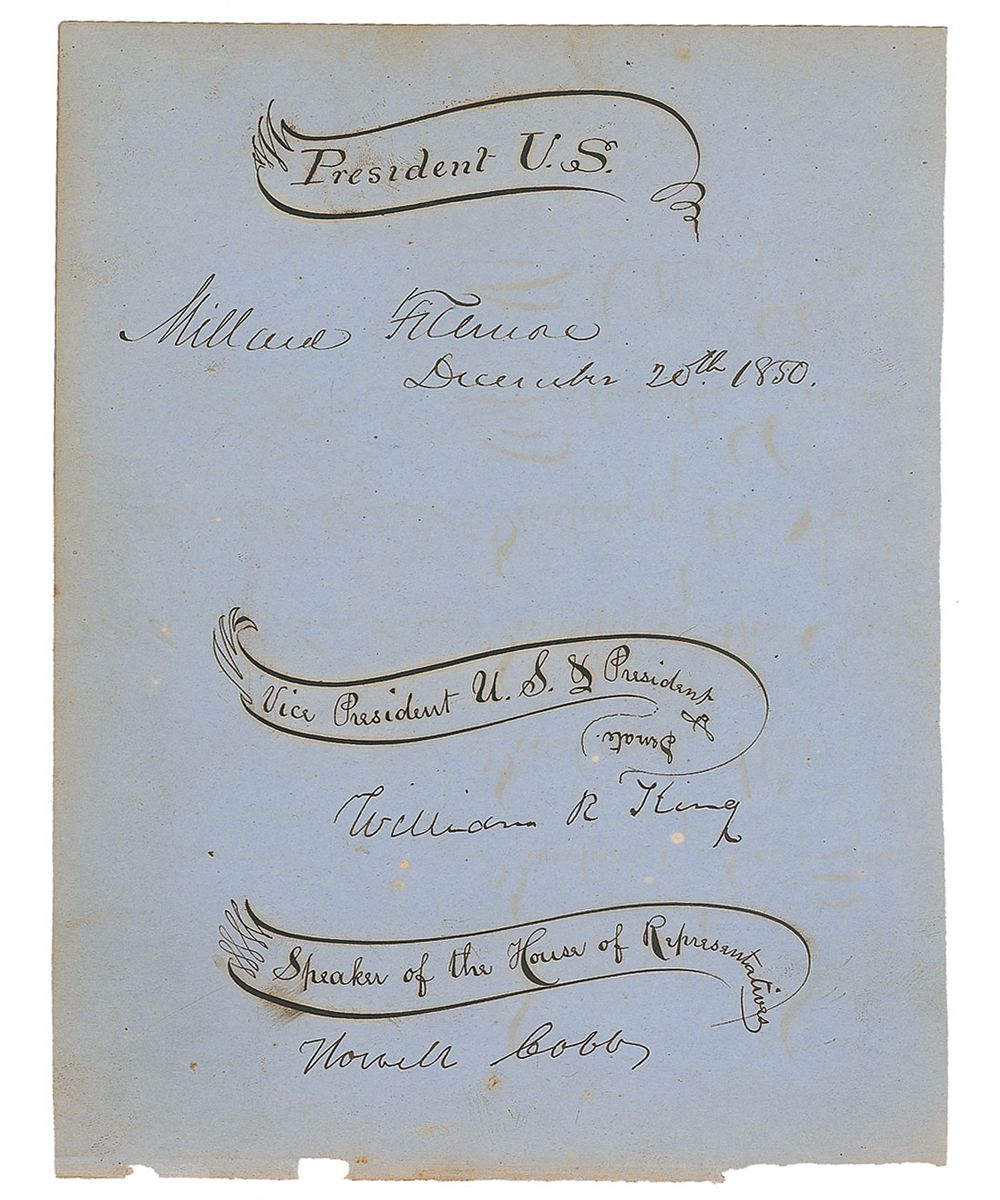 President U.S.
Millard Fillmore
December 20th. 1850.
Vice President U. S. & President of Senate.
William R King
Speaker of the House of Representatives
Howell Cobb